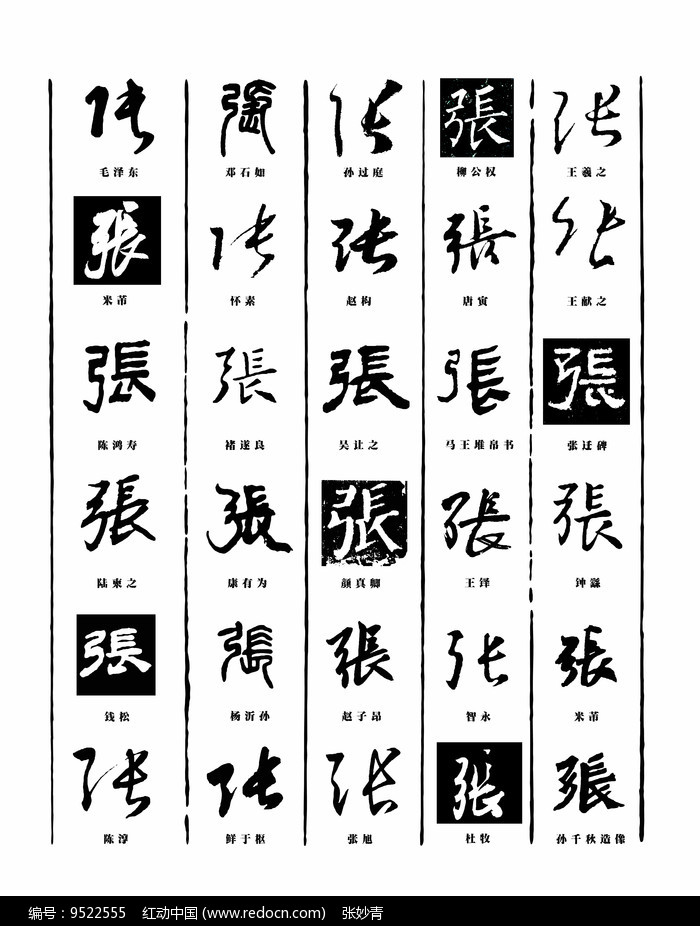 張 張 張 張 張
毛泽东 邓石如 孙过庭 柳公权 王羲之
張 張 張 張 張
米芾 怀素 赵构 唐寅 王献之
張 張 張 張 張
陈鸿寿 褚遂良 吴让之 马王堆帛书 张迁碑
張 張 張 張 張
陆柬之 康有为 颜真卿 王铎 钟繇
張 張 張 張 張
钱松 杨沂孙 赵子昂 智永 米芾
張 張 張 張 張
陈淳 鲜于枢 张旭 杜牧 孙千秋造像
编号：9522555 红动中国 (www.redocn.com) 张妙青